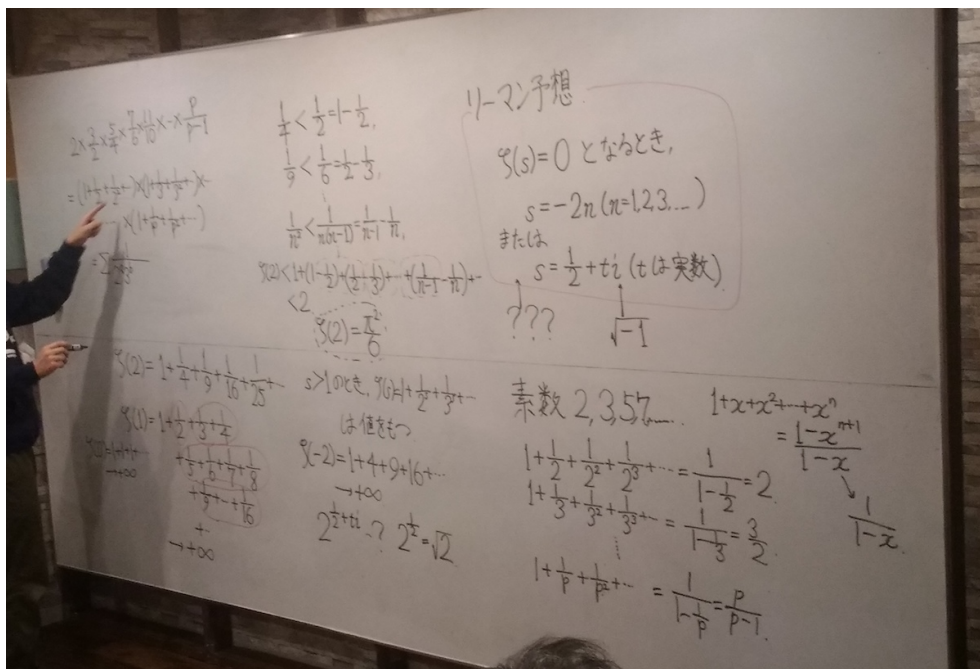 2×3/2×5/4×7/6×11/10×…×p/(p-1)
=(1+1/2+1/2²+…)×(1+1/3+1/3²+…)×…
…×(1+1/p+1/p²+…)
=Σ
1/4<1/2=1-1/2,
1/9<1/6=1/2-1/3,
⋮
1/n²<1/n(n-1)=1/(n-1)-1/n,
ζ(2)<1+(1-1/2)+(1/2-1/3)+…+(1/(n-1)-1/n)+…
<2
ζ(2)=π²/6
リーマン予想
ζ(s)=0 となるとき,
s=-2n(n=1,2,3,…)
または
s=1/2+ti(tは実数)
???
√-1
ζ(2)=1+1/4+1/9+1/16+1/25+…
ζ(1)=1+1/2+1/3+1/4
+1/5+1/6+1/7+1/8
+1/9+…+1/16
+…
→+∞
ζ(0)=1+1+1+…
→+∞
s>1のとき, ζ(s)=1+1/2ˢ+1/3ˢ+…
は値をもつ
ζ(-2)=1+4+9+16+…
→+∞
2^(1/2+ti)…? 2^(1/2)=√2
素数 2,3,5,7,……
1+1/2+1/2²+1/2³+…=1/(1-1/2)=2
1+1/3+1/3²+1/3³+…=1/(1-1/3)=3/2
⋮
1+1/p+1/p²+…=1/(1-1/p)=p/(p-1).
1+x+x²+…+xⁿ
=(1-xⁿ⁺¹)/(1-x)
1/(1-x).